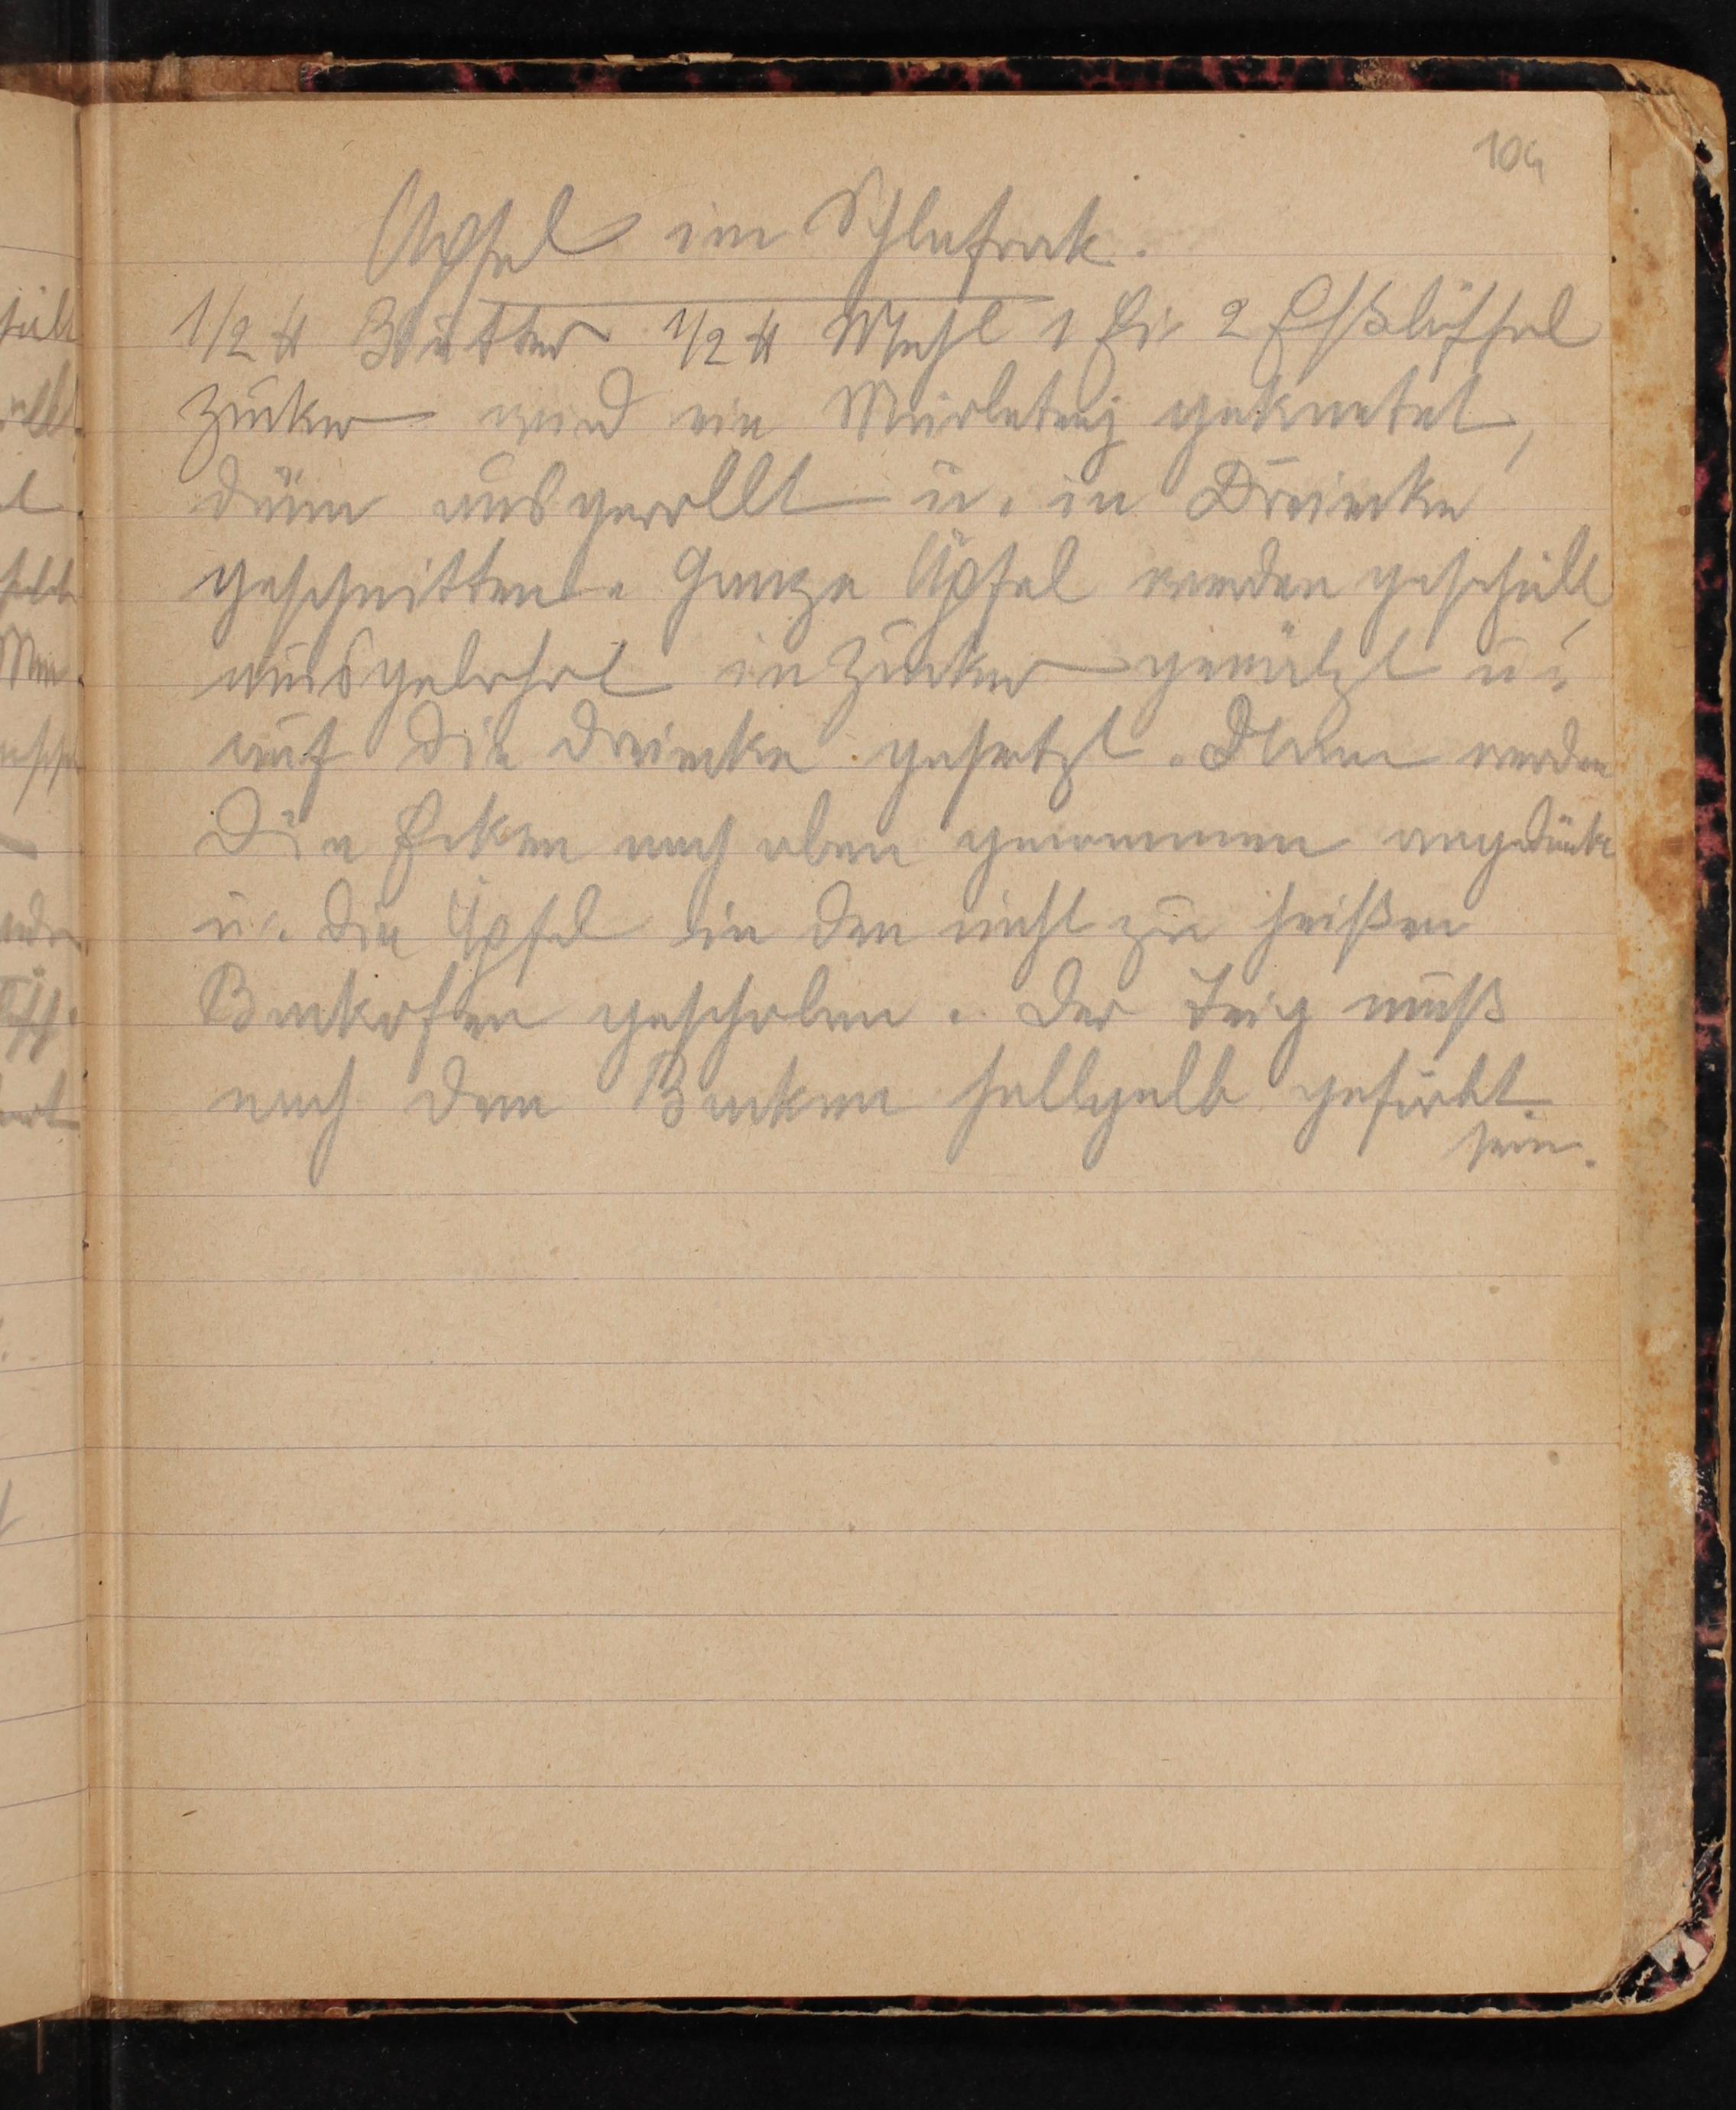 104
Äpfel im Schlafrock.
1/2 ℔ Butter 1/2 ℔ Mehl 1 Ei 2 Eßlöffel
Zucker wird ein Mürbeteig geknetet,
dünn ausgerollt u. in Dreiecke
geschnitten. Ganze Äpfel werden geschält,
ausgebohrt in Zucker gewälzt u.
auf die Dreiecke gesetzt. Dann werden
die Ecken nach oben genommen angedrückt
u. die Äpfel in den nicht zu heißen
Backofen geschoben. Der Teig muß
nach dem Backen hellgelb gefärbt
sein.